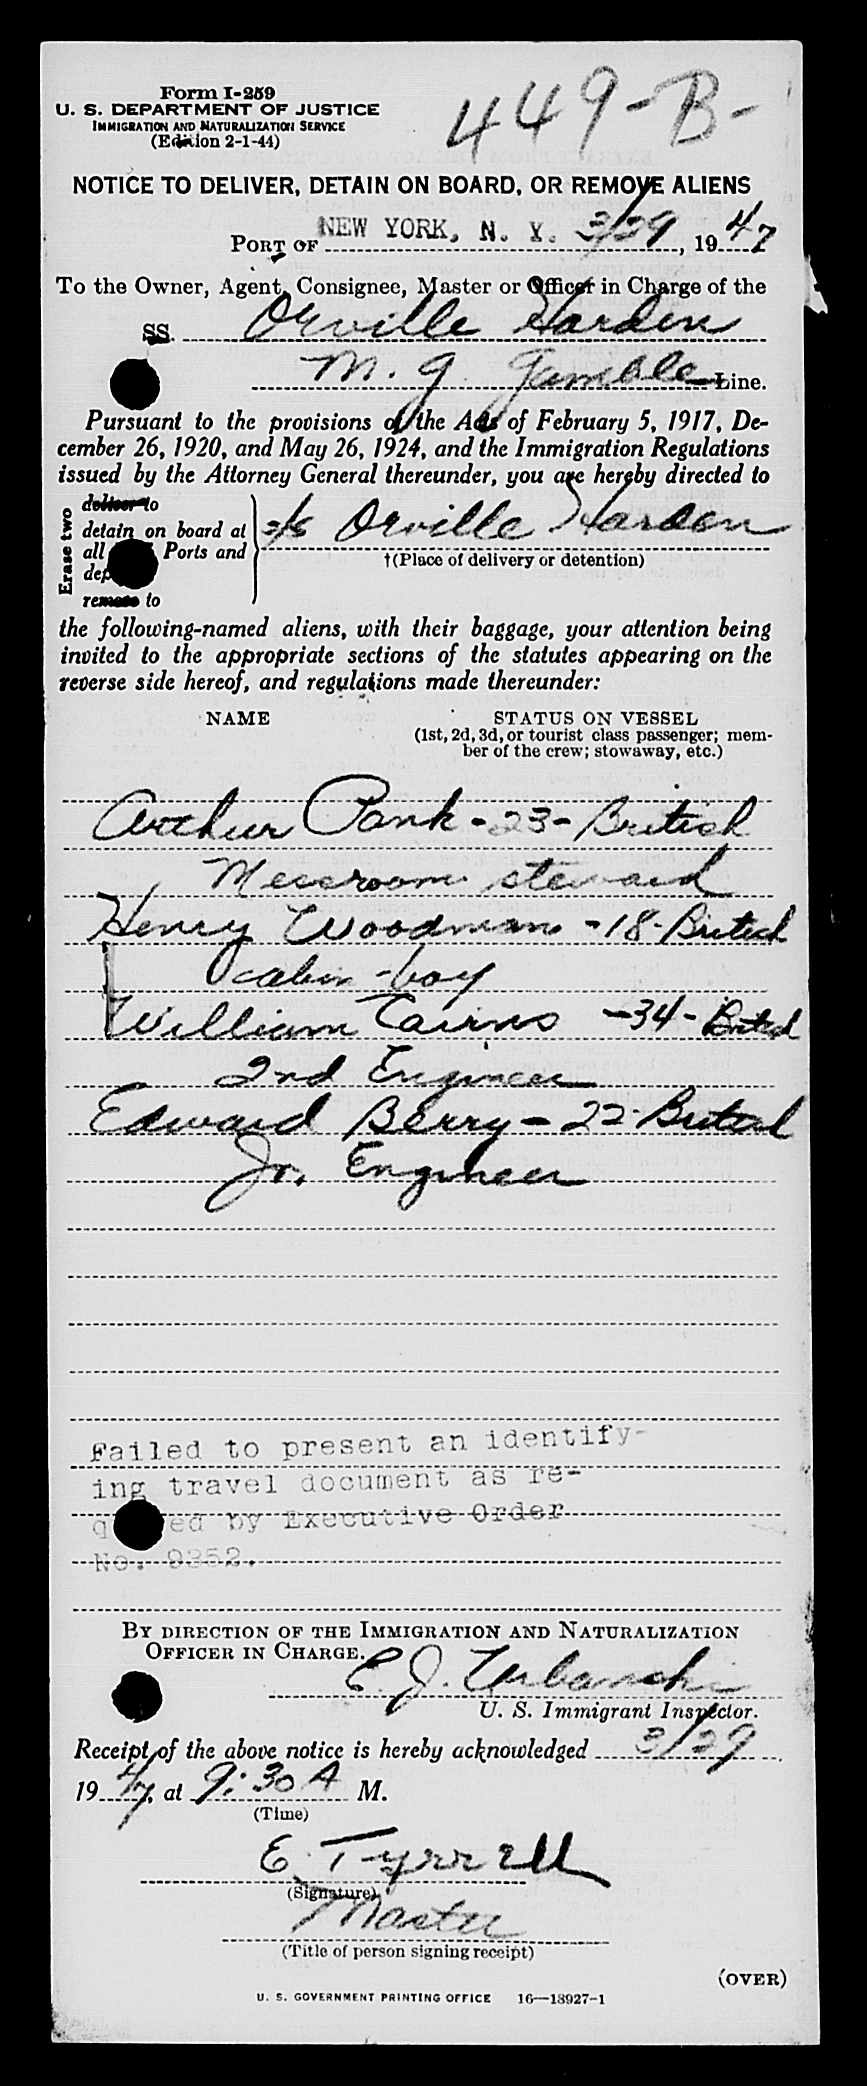 Form I-259
U. S. DEPARTMENT OF JUSTICE
IMMIGRATION AND NATURALIZATION SERVICE
(Edition 2-1-44)
449-B-
NOTICE TO DELIVER, DETAIN ON BOARD, OR REMOVE ALIENS
PORT OF NEW YORK, N. Y. 3/29, 1947
To the Owner, Agent, Consignee, Master or Officer in Charge of the
SS. Orville Harden
M. J. Gamble Line.
Pursuant to the provisions of the Acts of February 5, 1917, De-
cember 26, 1920, and May 26, 1924, and the Immigration Regulations
issued by the Attorney General thereunder, you are hereby directed to
Erase two
deliver to
detain on board at
all Ports and
remove to
s/s Orville Harden
†(Place of delivery or detention)
the following-named aliens, with their baggage, your attention being
invited to the appropriate sections of the statutes appearing on the
reverse side hereof, and regulations made thereunder:
NAME
STATUS ON VESSEL
(1st, 2d, 3d, or tourist class passenger; mem-
ber of the crew; stowaway, etc.)
Arthur Pank - 23 - British
Messroom steward
Henry Woodman - 18 - British
cabin-boy
William Cairns - 34 - British
2nd Engineer
Edward Berry - 22 - British
Jr. Engineer
Failed to present an identify-
ing travel document as re-
q ed by Executive Order
No. 9352.
BY DIRECTION OF THE IMMIGRATION AND NATURALIZATION
OFFICER IN CHARGE.
E. J. Urbanski
U. S. Immigrant Inspector.
Receipt of the above notice is hereby acknowledged 3/29
1947, at 9:30 A M.
(Time)
E. Tyrrell
(Signature)
Master
(Title of person signing receipt)
(OVER)
U. S. GOVERNMENT PRINTING OFFICE 16—18927-1